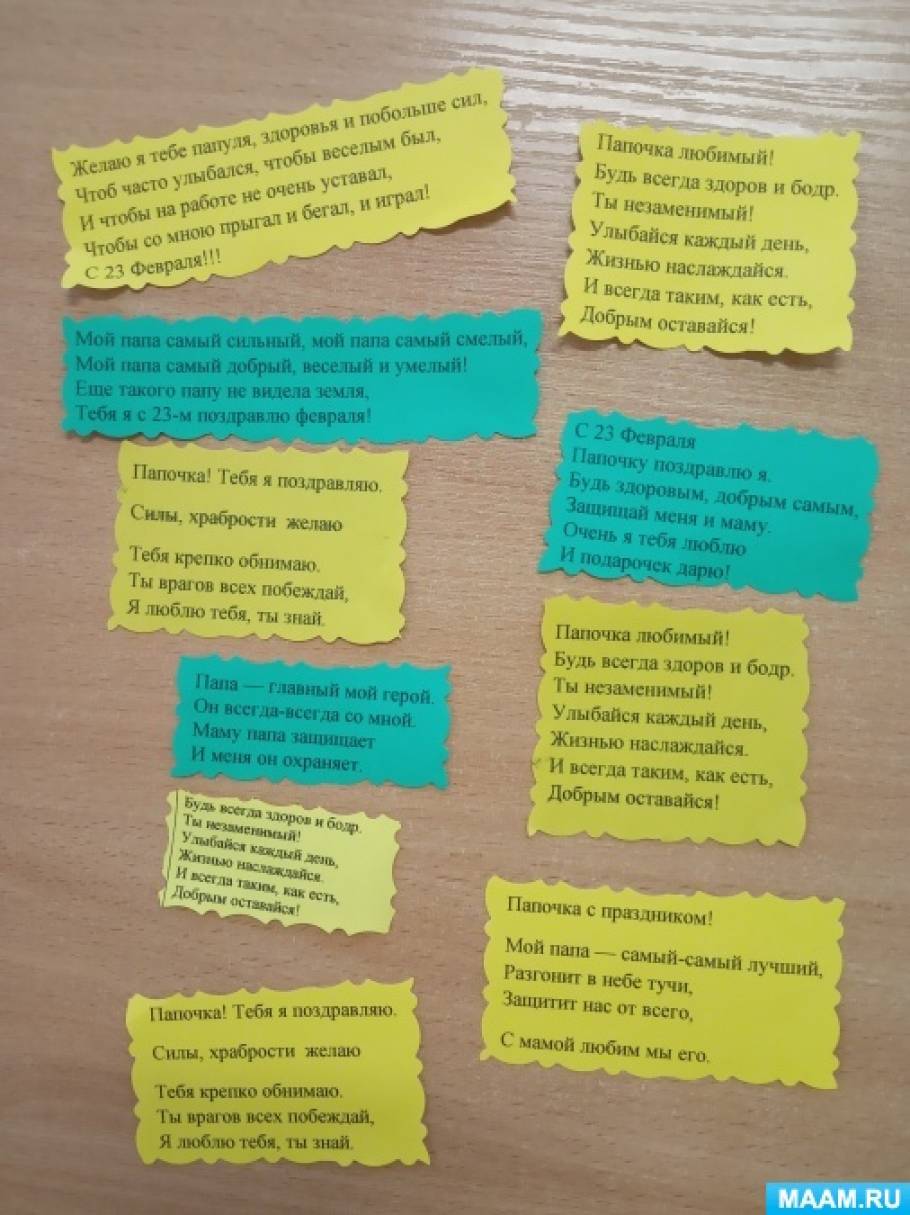 Желаю я тебе папуля, здоровья и побольше сил,
Чтоб часто улыбался, чтобы веселым был,
И чтобы на работе не очень уставал,
Чтобы со мною прыгал и бегал, и играл!
С 23 Февраля!!!
Папочка любимый!
Будь всегда здоров и бодр.
Ты незаменимый!
Улыбайся каждый день,
Жизнью наслаждайся.
И всегда таким, как есть,
Добрым оставайся!
Мой папа самый сильный, мой папа самый смелый,
Мой папа самый добрый, веселый и умелый!
Еще такого папу не видела земля,
Тебя я с 23-м поздравлю февраля!
С 23 Февраля
Папочку поздравлю я.
Будь здоровым, добрым самым,
Защищай меня и маму.
Очень я тебя люблю
И подарочек дарю!
Папочка! Тебя я поздравляю.
Силы, храбрости желаю
Тебя крепко обнимаю.
Ты врагов всех побеждай,
Я люблю тебя, ты знай.
Папочка любимый!
Будь всегда здоров и бодр.
Ты незаменимый!
Улыбайся каждый день,
Жизнью наслаждайся.
И всегда таким, как есть,
Добрым оставайся!
Папа — главный мой герой.
Он всегда-всегда со мной.
Маму папа защищает
И меня он охраняет.
Будь всегда здоров и бодр.
Ты незаменимый!
Улыбайся каждый день,
Жизнью наслаждайся.
И всегда таким, как есть,
Добрым оставайся!
Папочка с праздником!
Мой папа — самый-самый лучший,
Разгонит в небе тучи,
Защитит нас от всего,
С мамой любим мы его.
Папочка! Тебя я поздравляю.
Силы, храбрости желаю
Тебя крепко обнимаю.
Ты врагов всех побеждай,
Я люблю тебя, ты знай.
MAAM.RU